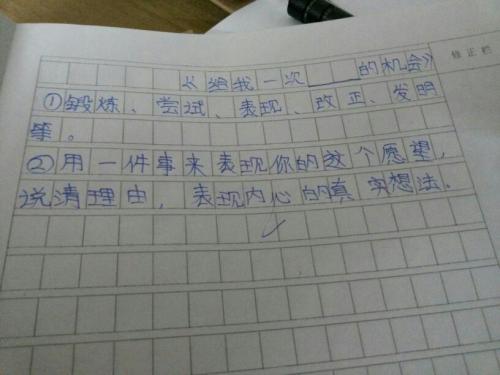 《给我一次___的机会》
修正栏
①锻炼、尝试、表现、改正、发明
等。
②用一件事来表现你的这个愿望,
说清理由,表现内心的真实想法。